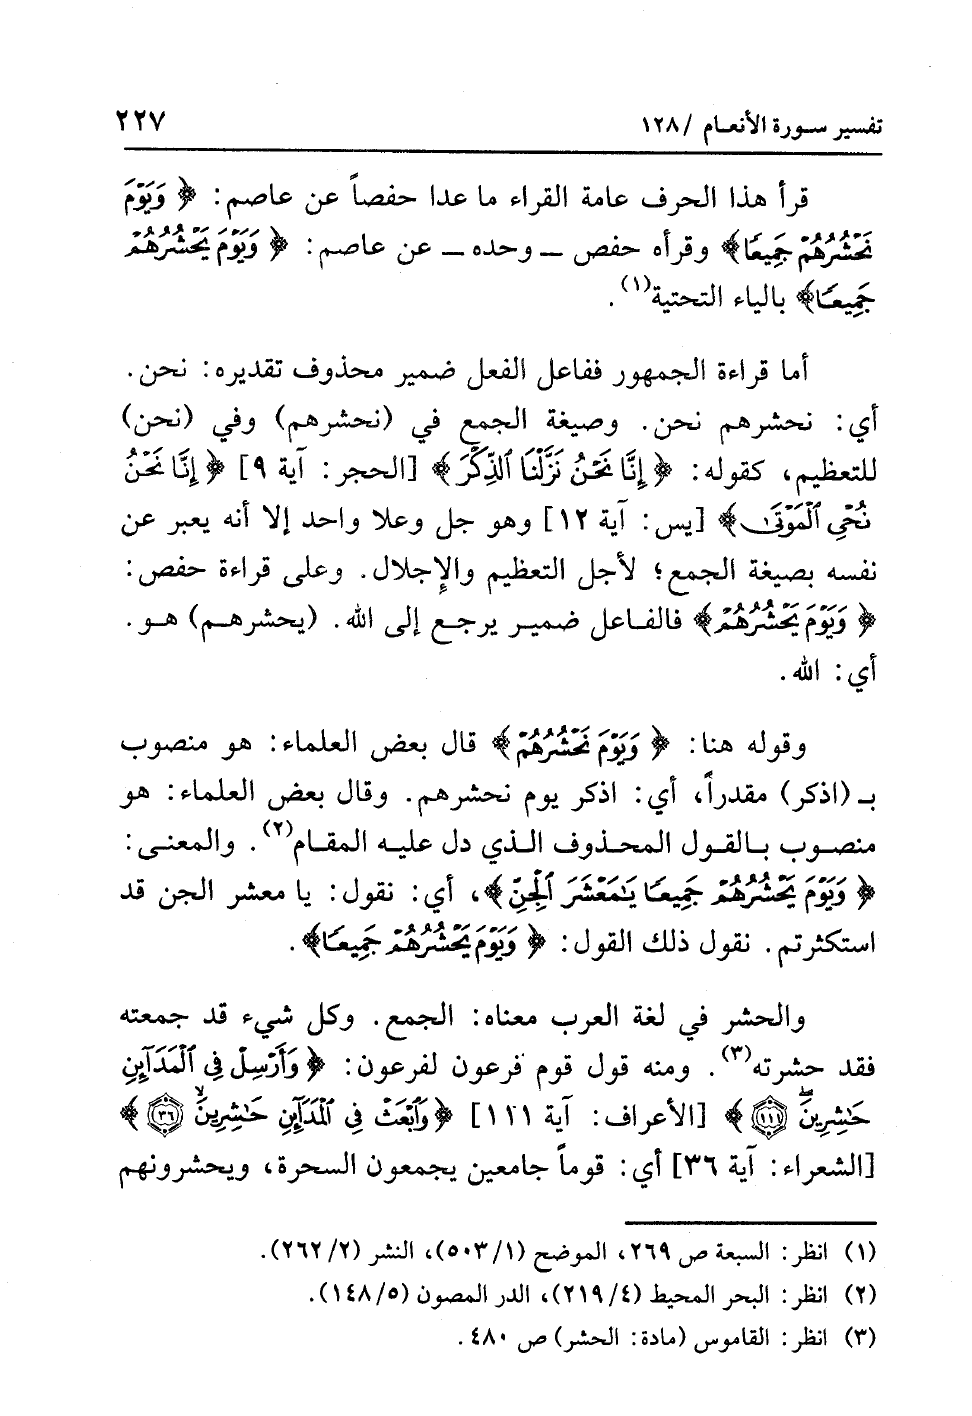 تفسير سورة الأنعام / ١٢٨
٢٢٧
قرأ هذا الحرف عامة القراء ما عدا حفصاً عن عاصم: ﴿ وَيَوْمَ
نَحْشُرُهُمْ جَمِيعًا﴾ وقرأه حفص ــ وحده ــ عن عاصم: ﴿ وَيَوْمَ يَحْشُرُهُمْ
جَمِيعًا﴾ بالياء التحتية(١).
أما قراءة الجمهور ففاعل الفعل ضمير محذوف تقديره: نحن.
أي: نحشرهم نحن. وصيغة الجمع في (نحشرهم) وفي (نحن)
للتعظيم، كقوله: ﴿ إِنَّا نَحْنُ نَزَّلْنَا ٱلذِّكْرَ﴾ [الحجر: آية ٩] ﴿ إِنَّا نَحْنُ
نُحْيِ ٱلْمَوْتَىٰ﴾ [يس: آية ١٢] وهو جل وعلا واحد إلا أنه يعبر عن
نفسه بصيغة الجمع؛ لأجل التعظيم والإجلال. وعلى قراءة حفص:
﴿ وَيَوْمَ يَحْشُرُهُمْ﴾ فالفاعل ضمير يرجع إلى الله. (يحشرهم) هو.
أي: الله.
وقوله هنا: ﴿ وَيَوْمَ نَحْشُرُهُمْ﴾ قال بعض العلماء: هو منصوب
بـ (اذكر) مقدراً، أي: اذكر يوم نحشرهم. وقال بعض العلماء: هو
منصوب بالقول المحذوف الذي دل عليه المقام(٢). والمعنى:
﴿ وَيَوْمَ يَحْشُرُهُمْ جَمِيعًا يَٰمَعْشَرَ ٱلْجِنِّ﴾، أي: نقول: يا معشر الجن قد
استكثرتم. نقول ذلك القول: ﴿ وَيَوْمَ يَحْشُرُهُمْ جَمِيعًا﴾.
والحشر في لغة العرب معناه: الجمع. وكل شيء قد جمعته
فقد حشرته(٣). ومنه قول قوم فرعون لفرعون: ﴿ وَأَرْسِلْ فِى ٱلْمَدَآئِنِ
حَٰشِرِينَ ١١١﴾ [الأعراف: آية ١١١] ﴿ وَٱبْعَثْ فِى ٱلْمَدَآئِنِ حَٰشِرِينَ ٣٦﴾
[الشعراء: آية ٣٦] أي: قوماً جامعين يجمعون السحرة، ويحشرونهم
(١) انظر: السبعة ص ٢٦٩، الموضح (٥٠٣/١)، النشر (٢٦٢/٢).
(٢) انظر: البحر المحيط (٢١٩/٤)، الدر المصون (١٤٨/٥).
(٣) انظر: القاموس (مادة: الحشر) ص ٤٨٠.